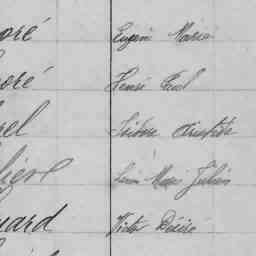 oré Eugène Marie
oré Henri Paul
el Isidore Aristide
lière Léon Marie Julien
uard Victor Désiré